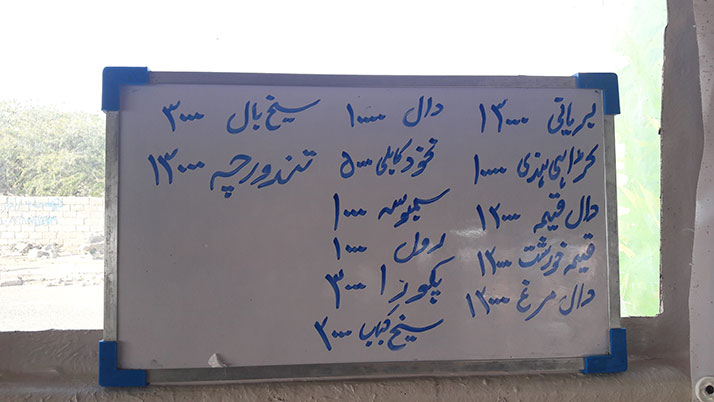 بریانی ۱۳۰۰۰
کڑاہی ہندی ۱۰۰۰۰
دال قیمه ۱۲۰۰۰
قیمه خورشت ۱۲۰۰۰
دال مرغ ۱۲۰۰۰
دال ۱۰۰۰۰
نخود کابلی ۵۰۰۰
سمبوسه ۱۰۰۰
رول ۱۰۰۰
پکوڑا ۳۰۰۰
سیخ کباب ۲۰۰۰
سیخ بال ۳۰۰۰
تندورچه ۱۳۰۰۰